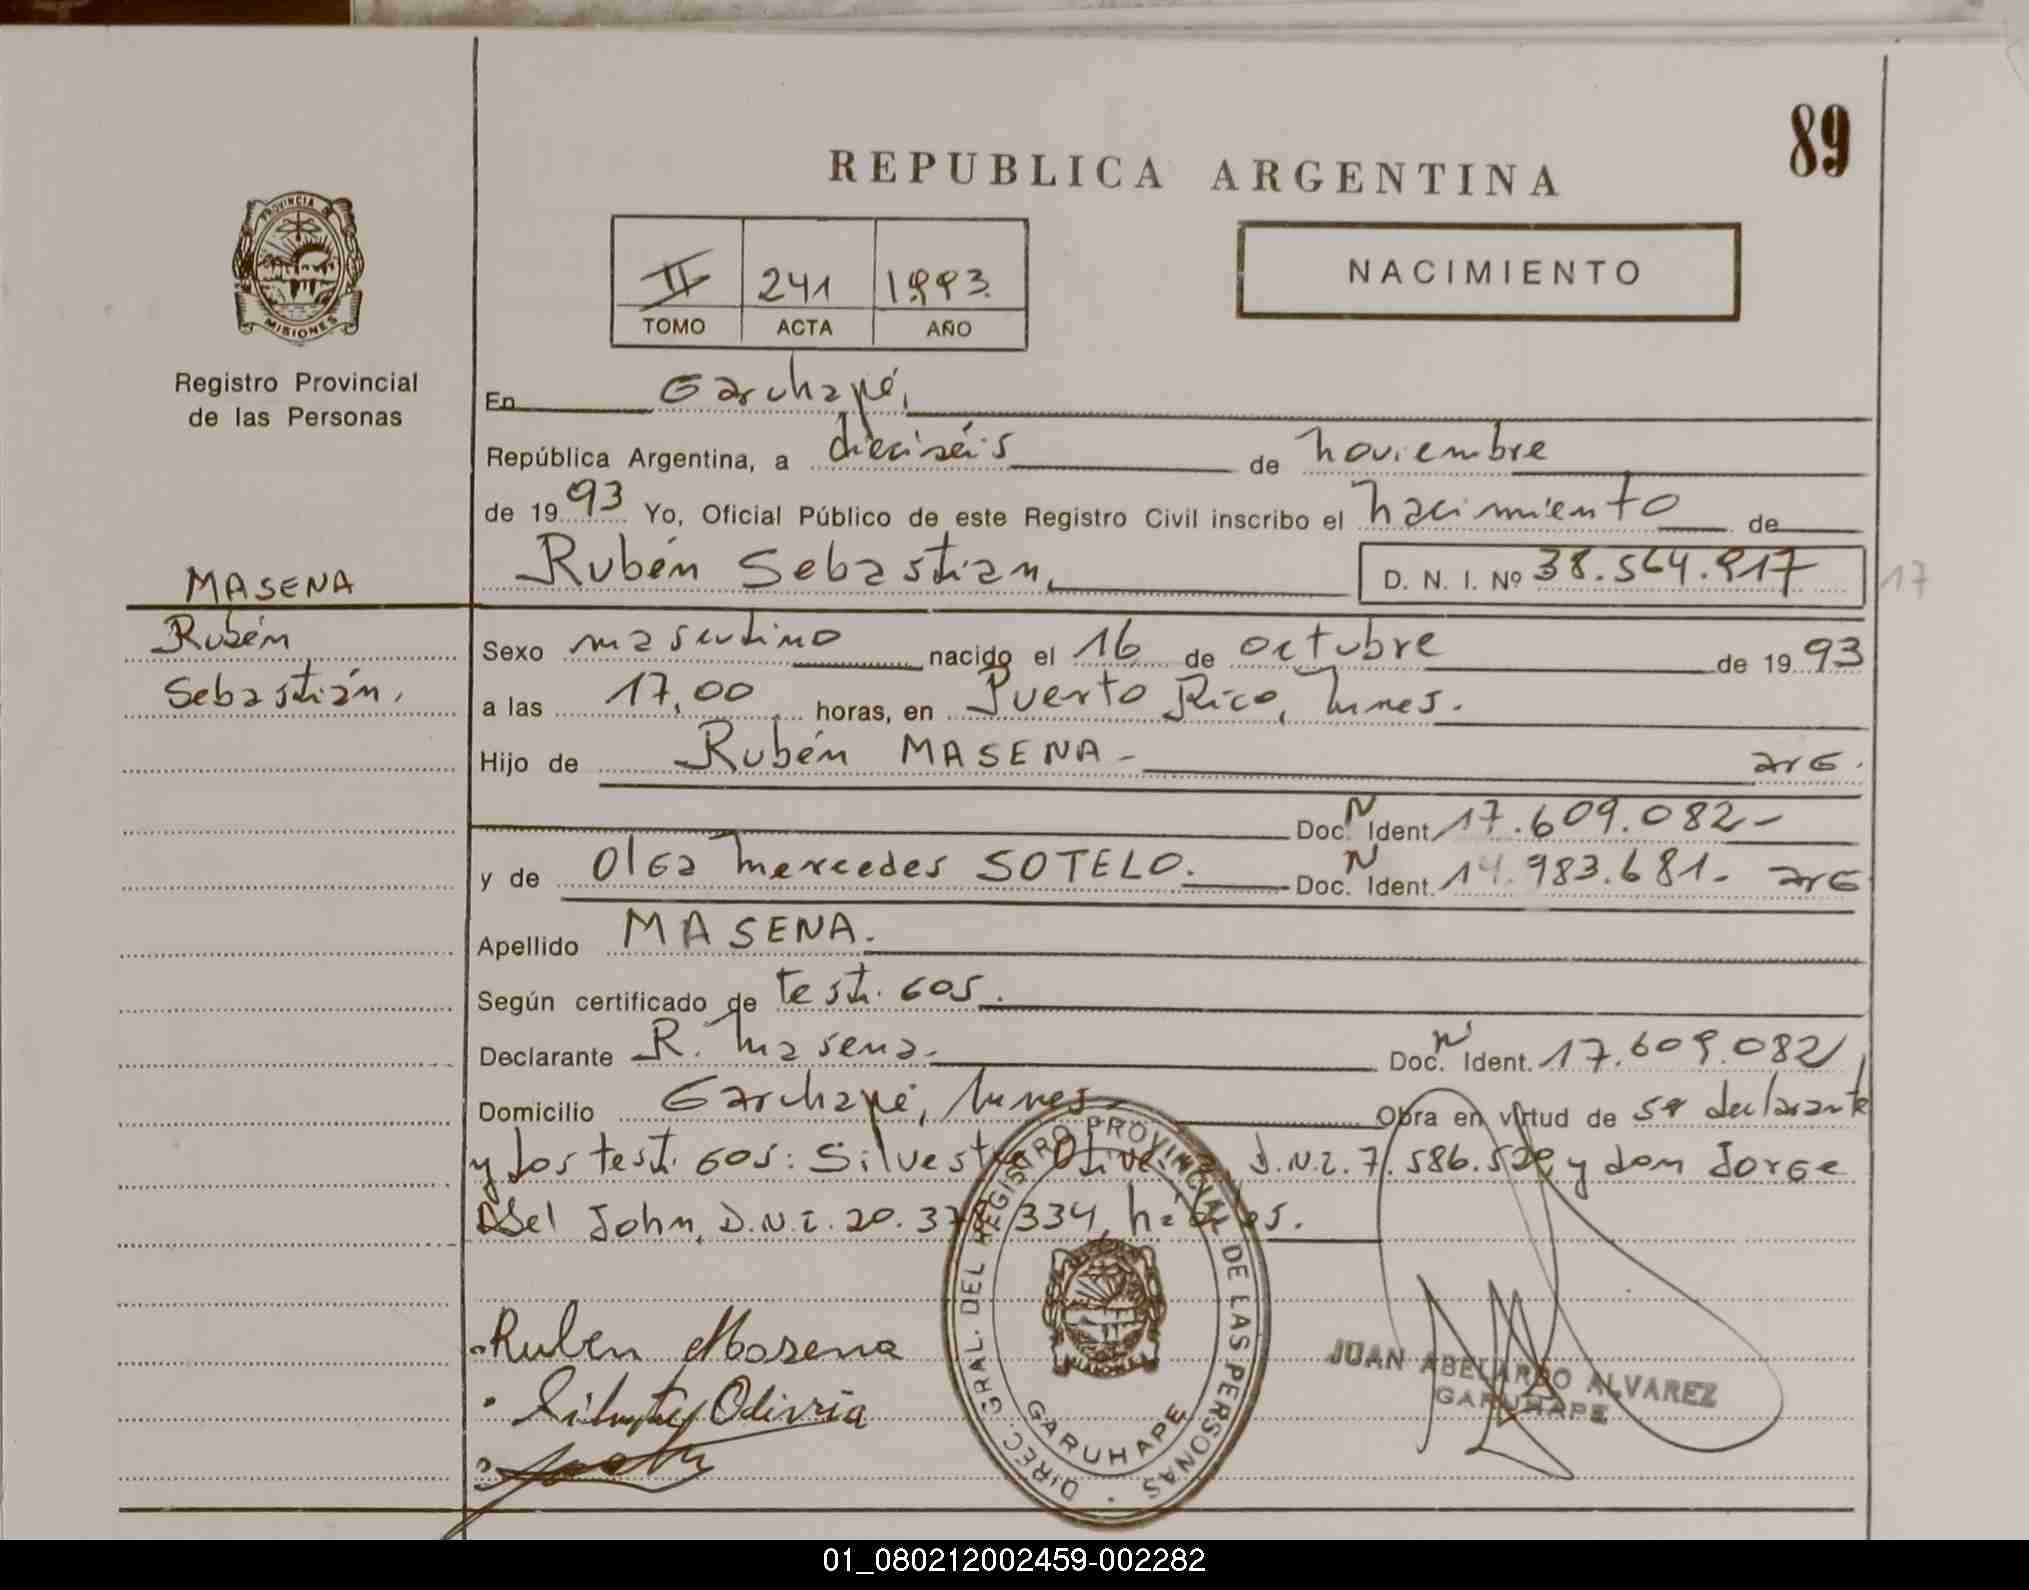 89
REPUBLICA ARGENTINA
NACIMIENTO
II 241 1993.
TOMO ACTA AÑO
PROVINCIA DE
MISIONES
Registro Provincial
de las Personas
En Garuhapé,
República Argentina, a dieciséis de noviembre
de 1993 Yo, Oficial Público de este Registro Civil inscribo el nacimiento de
Rubén Sebastian, D. N. I. Nº 38.564.917 17
MASENA
Rubén
Sebastián.
Sexo masculino nacido el 16 de octubre de 1993
a las 17,00 horas, en Puerto Rico, Mnes.
Hijo de Rubén MASENA - arG.
Doc. N Ident. 17.609.082-
y de Olga Mercedes SOTELO. Doc. N Ident. 14.983.681. arG
Apellido MASENA.
Según certificado de testigos.
Declarante R. Masena. Doc. N Ident. 17.609.082,
Domicilio Garuhapé, Mnes. Obra en virtud de ser declarante
y los testigos: Silvestre D.N.I. 7.586.520, y don Jorge
John, D.N.I. 20. 334, hábiles.
Ruben Masena
Olivera
JUAN ABELARDO ALVAREZ
GARUHAPE
DIREC. GRAL. DEL REGISTRO PROVINCIAL DE LAS PERSONAS
GARUHAPE
01_080212002459-002282